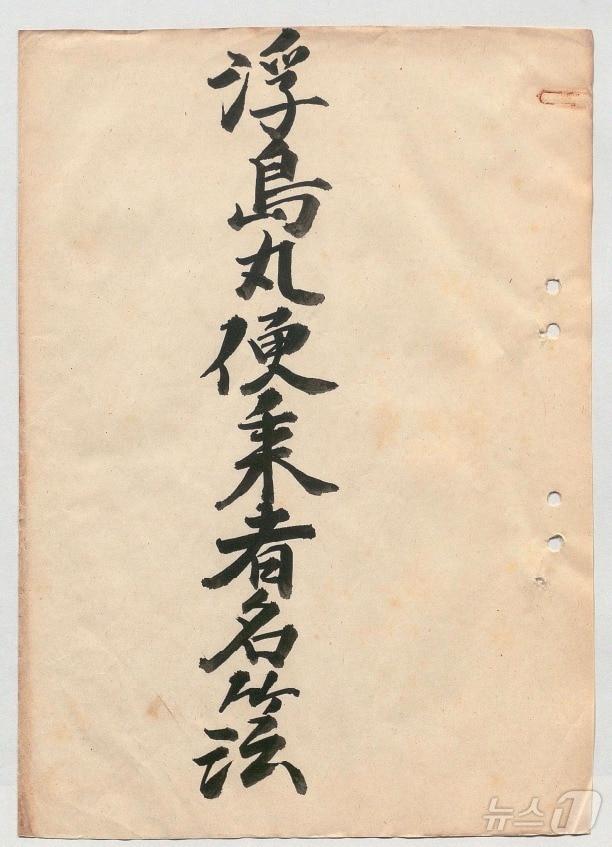 浮島丸便乗者名簿
뉴스1